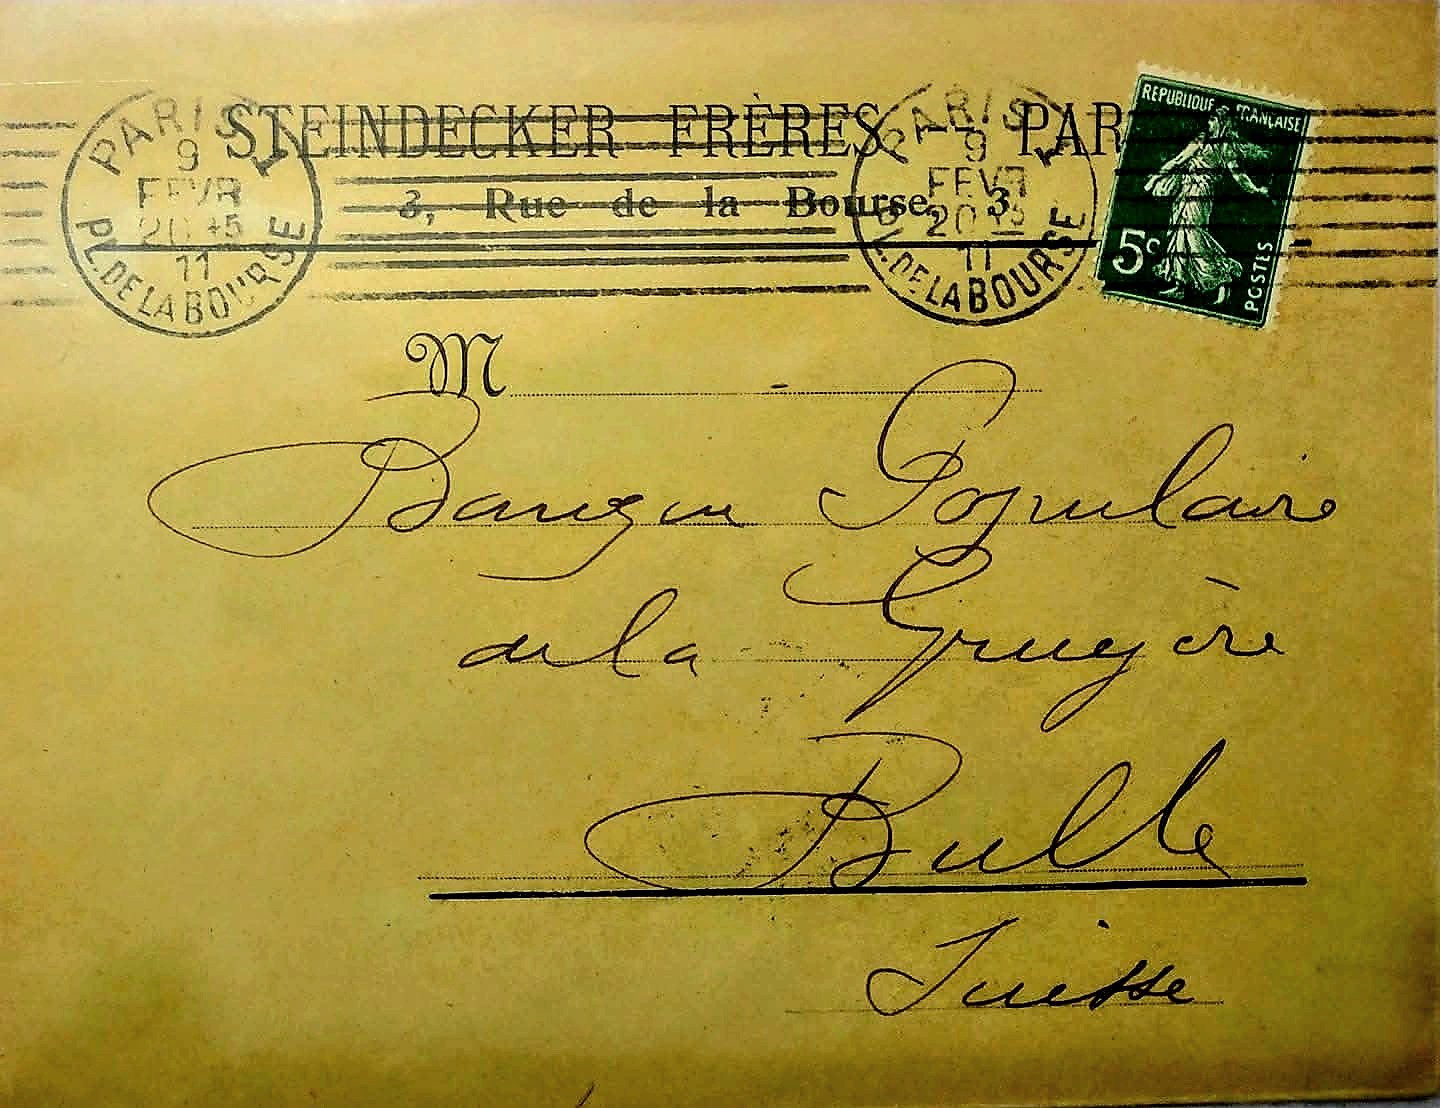 STEINDECKER FRÈRES - PAR
3, Rue de la Bourse, 3
PARIS 1
9
FEVR
20 45
11
PL. DE LA BOURSE
PARIS 1
9
FEVR
20 45
11
PL. DE LA BOURSE
REPUBLIQUE FRANÇAISE
5c
POSTES
M
Banque Populaire
de la Gruyère
Bulle
Suisse